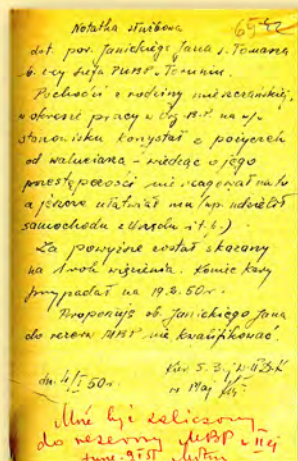 65-42
Notatka służbowa
dot. por. Janickiego Jana s. Tomasza
b. z-cy szefa PUBP w Toruniu.
Pochodzi z rodziny mieszczańskiej,
w okresie pracy w Org. B.P. na w/w
stanowisku korzystał z pożyczek
od waluciarza - wiedząc o jego
przestępczości nie reagował na to
a jeszcze ułatwiał mu (np. udzielał
samochodu z Urzędu i t.p.)
Za powyższe został skazany
na 1 rok więzienia. Koniec kary
przypadał na 19.2.50 r.
Proponuję ob. Janickiego Jana
do rezerw MBP nie kwalifikować.
dn. 4/I 50 r.
Kier. S.
Maj
być zaliczony
do rezerwy MBP